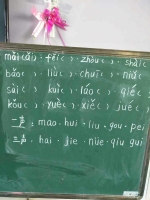 mǎi(ǎi)·féi( )·zhòu( )·shài(
bǎo( )·liù( )·chuī( )·niú(
sài( )·kuí( )·láo( )·qié(
kǒu( )·yuè( )·xiě( )·jué(
一声:mao·hui·liu·gou·pei
二声:hai·jie·nüe·qiu·gui